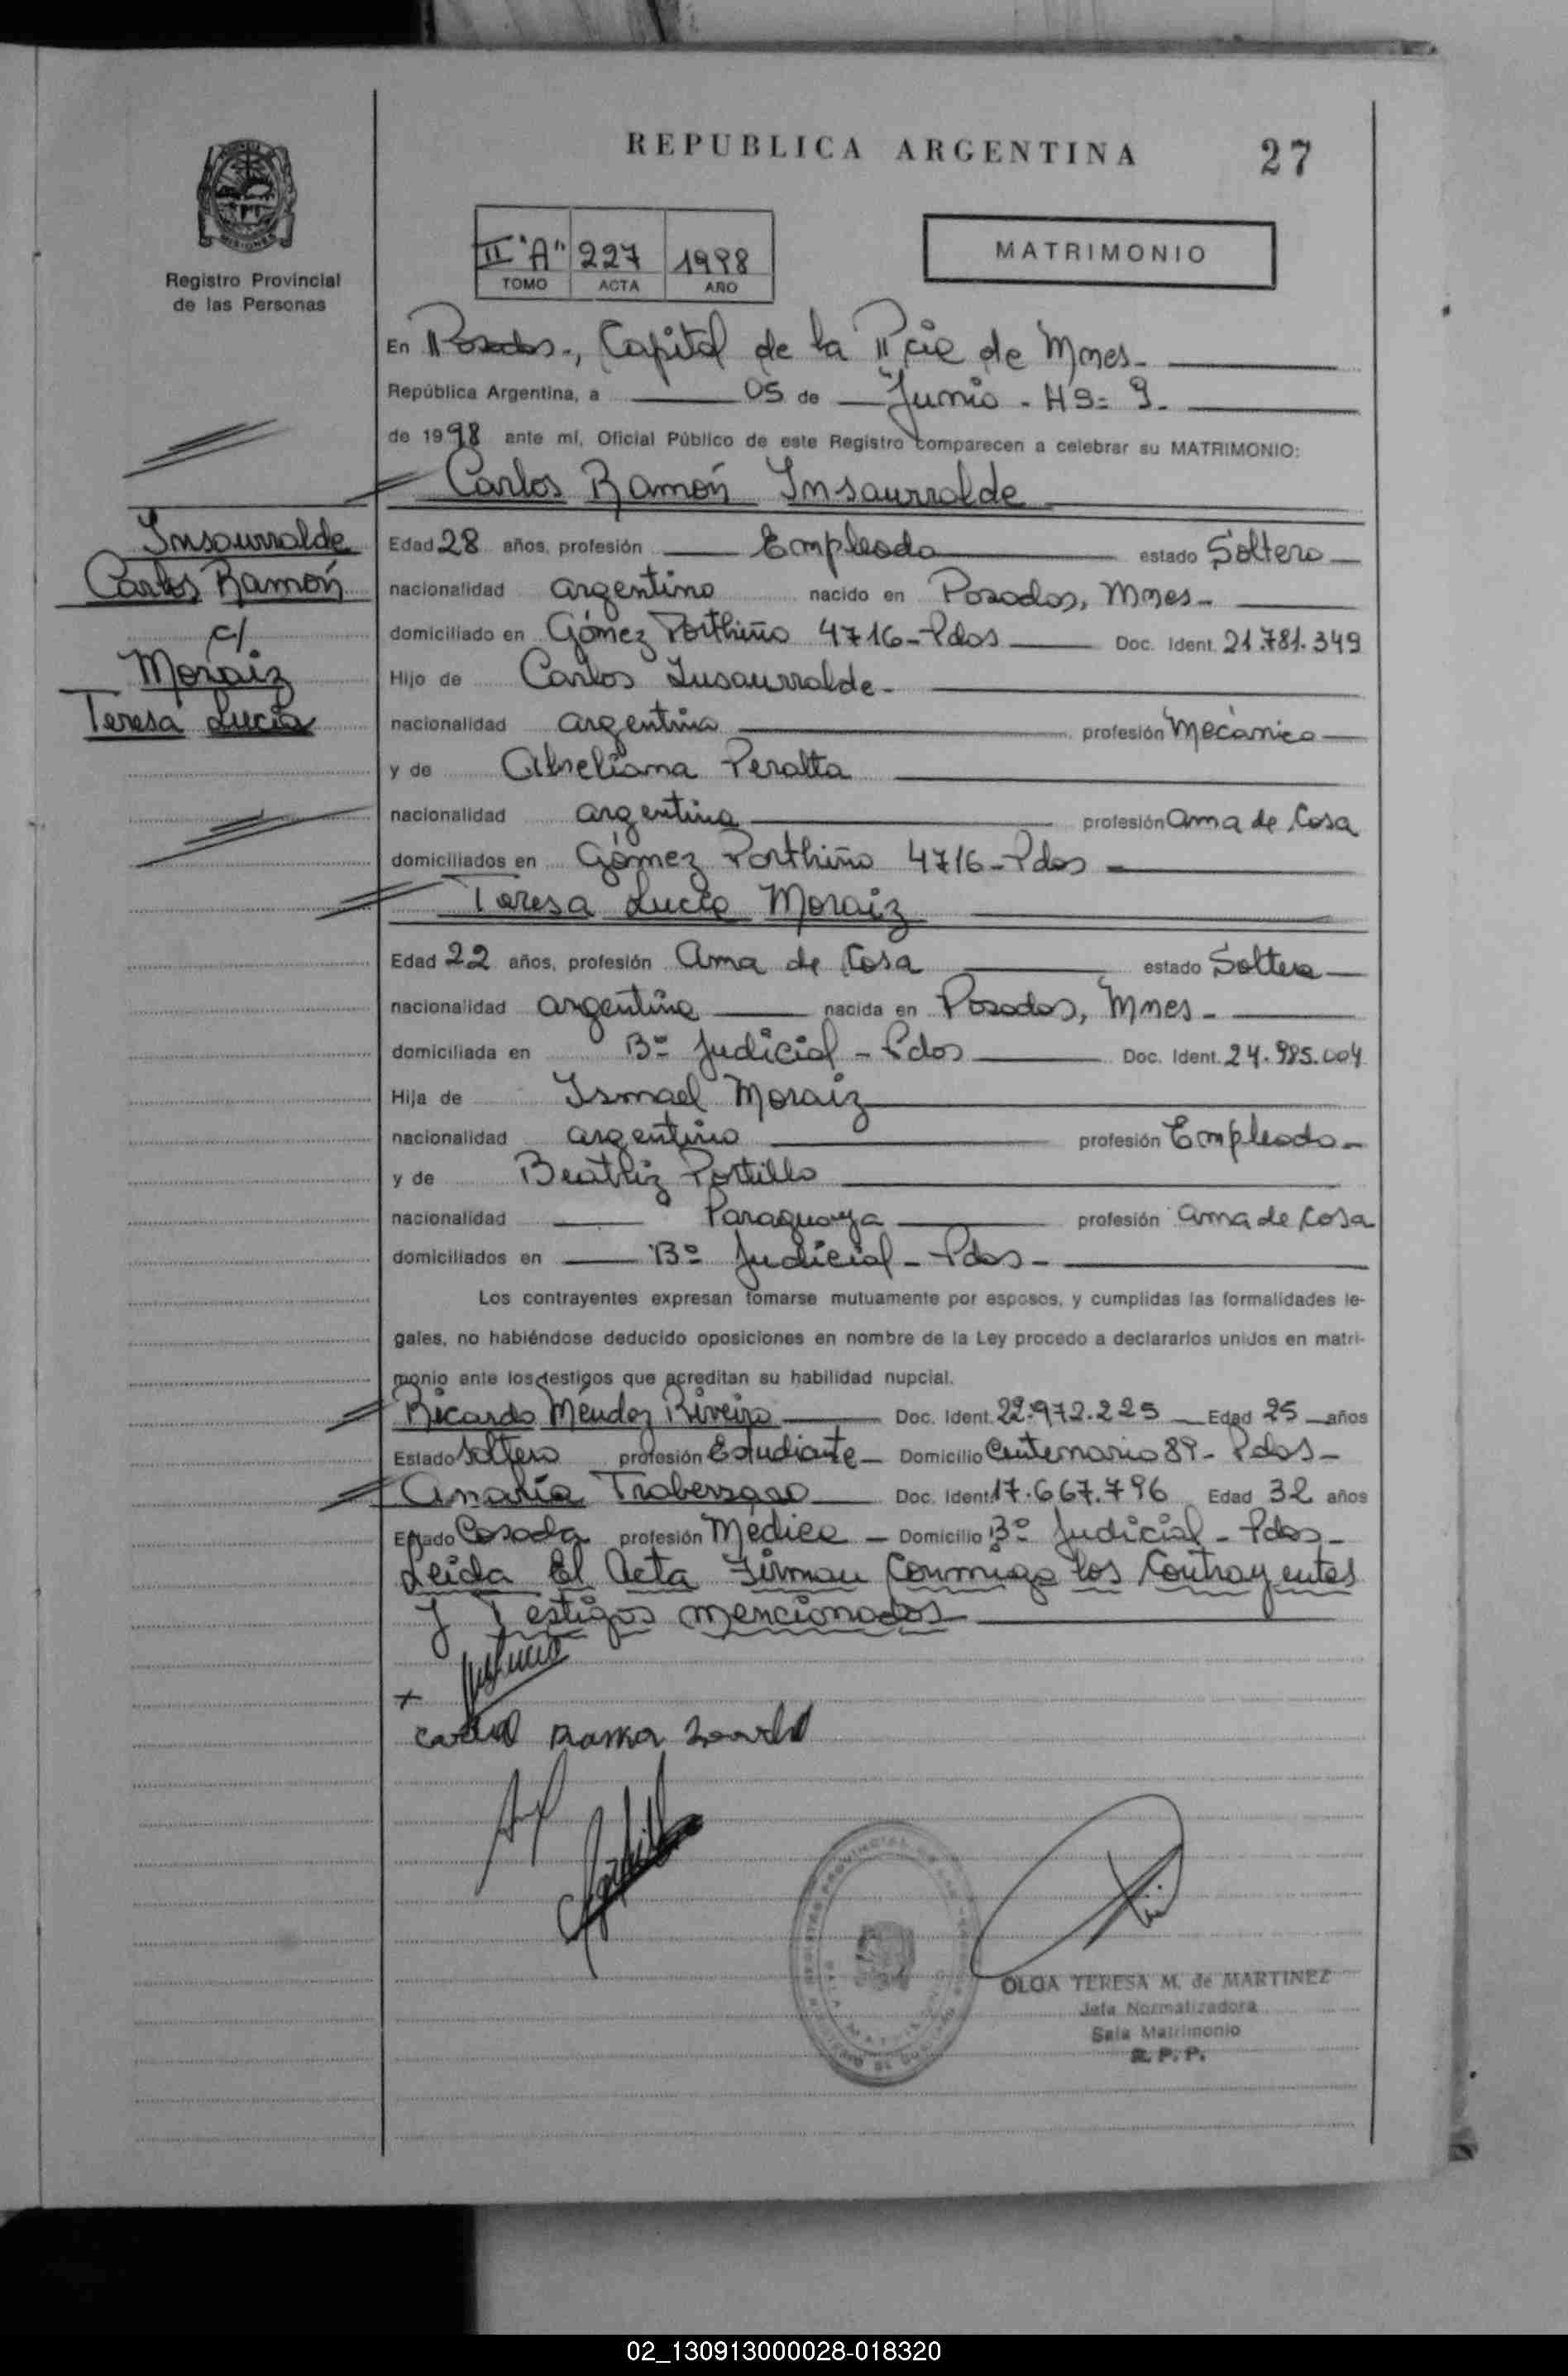 REPUBLICA ARGENTINA
27
MISIONES
Registro Provincial
de las Personas
II "A" 227 1998
TOMO ACTA AÑO
MATRIMONIO
En Posadas., Capital de la Pcie de Mnes-
República Argentina, a 05 de Junio - HS= 9.
de 1998 ante mí, Oficial Público de este Registro comparecen a celebrar su MATRIMONIO:
Carlos Ramón Insaurralde
Insaurralde
Carlos Ramón
c/
Moraiz
Teresa Lucía
Edad 28 años, profesión Empleado estado Soltero
nacionalidad argentino nacido en Posadas, Mnes-
domiciliado en Gómez Porthiño 4716-Pdas Doc. Ident. 21.781.349
Hijo de Carlos Insaurralde-
nacionalidad argentino profesión Mecánico
y de Peralta
nacionalidad argentina profesión ama de Casa
domiciliados en Gómez Porthiño 4716-Pdas
Teresa Lucía Moraiz
Edad 22 años, profesión Ama de Casa estado Soltera
nacionalidad argentina nacida en Posadas, Mnes-
domiciliada en Bº Judicial - Pdas Doc. Ident. 24.985.004
Hija de Ismael Moraiz
nacionalidad argentino profesión Empleado-
y de Beatriz Portillo
nacionalidad Paraguaya profesión ama de casa
domiciliados en Bº Judicial - Pdas-
Los contrayentes expresan tomarse mutuamente por esposos, y cumplidas las formalidades le-
gales, no habiéndose deducido oposiciones en nombre de la Ley procedo a declararlos unidos en matri-
monio ante los testigos que acreditan su habilidad nupcial.
Ricardo Méndez Riveiro Doc. Ident. 22.972.225 Edad 25 años
Estado Soltero profesión Estudiante- Domicilio Centenario 89- Pdas-
Analía Doc. Ident. 17.667.796 Edad 32 años
Estado Casada profesión Médica - Domicilio Bº Judicial - Pdas-
Leida El Acta Firman Conmigo los Contrayentes
y Testigos mencionados
OLGA TERESA M. de MARTINEZ
Jefa Normalizadora
Sala Matrimonio
R. P. P.
02_130913000028-018320